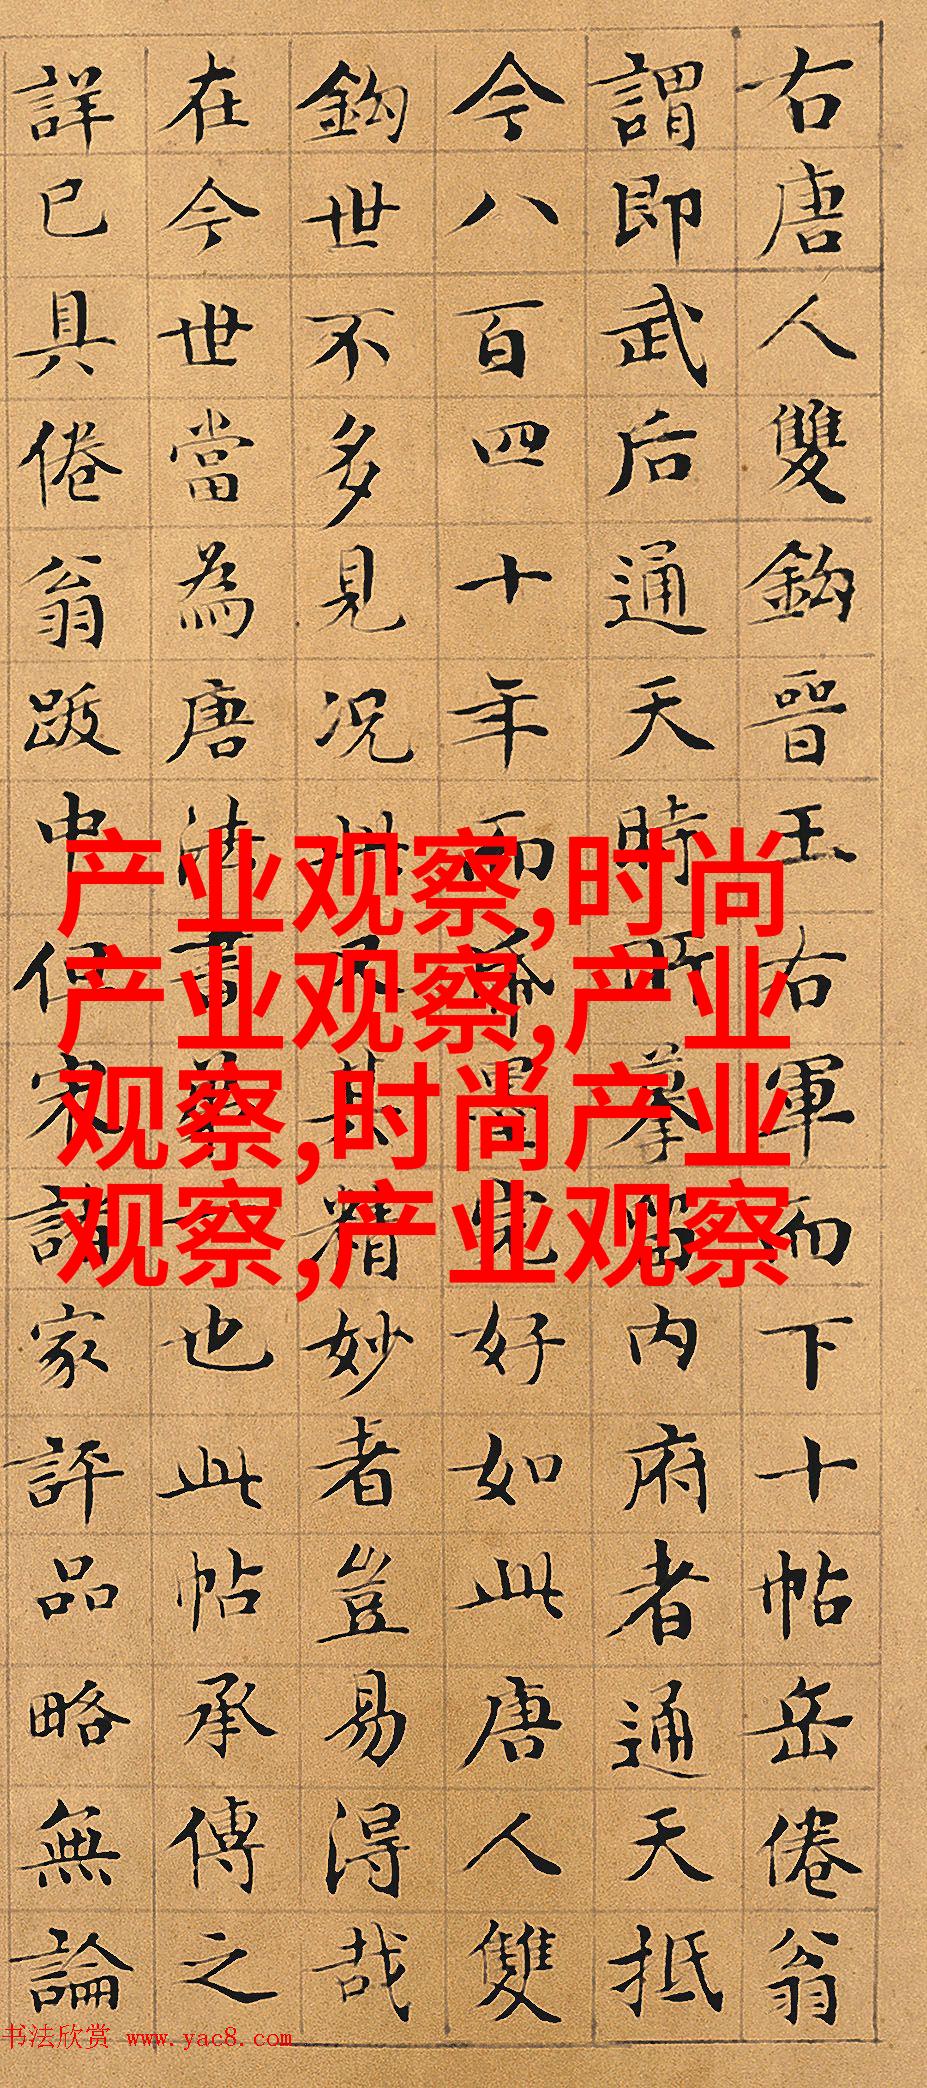 右唐人雙鈎晉王右軍而下十帖岳倦翁
謂即武后通天時所摹留内府者通天抵
今八百四十年而紙墨完好如此唐人雙
鈎世不多見況此又其精妙者豈易得哉
在今世當為唐法書第一也此帖承傳之
詳已具倦翁跋中但宋諸家評品略無論
产业观察,时尚
产业观察,产业
观察,时尚产业
观察,产业观察
书法欣赏 www.yac8.com